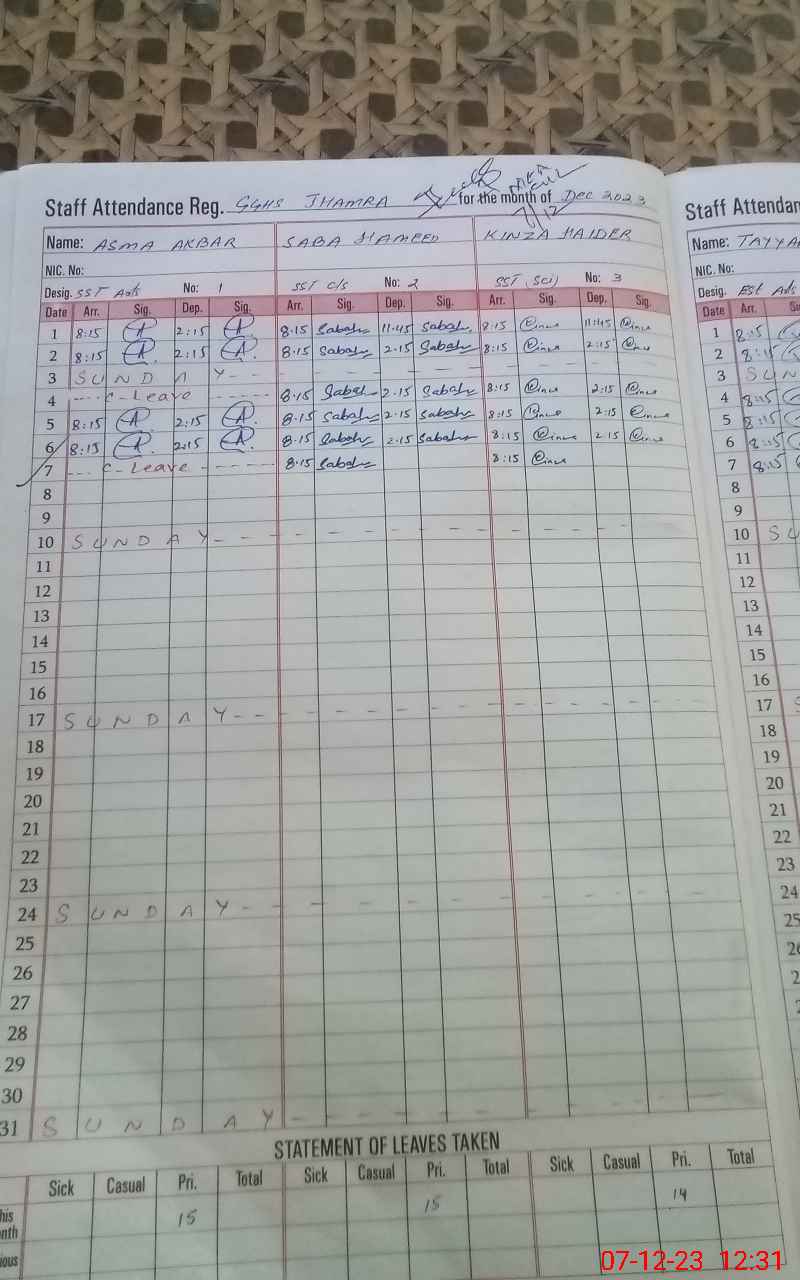 Staff Attendance Reg. GGHS JHAMRA for the month of Dec 2023
Name: ASMA AKBAR SABA HAMEED KINZA HAIDER
NIC. No:
Desig. SST Arts No: 1 SST C/S No: 2 SST (Sci) No: 3
Date Arr. Sig. Dep. Sig. Arr. Sig. Dep. Sig. Arr. Sig. Dep. Sig.
1 8:15 2:15 8:15 Sabah 11:45 Sabah 8:15 11:45
2 8:15 2:15 8:15 Sabah 2:15 Sabah 8:15 2:15
3 SUNDAY
4 C-Leave 8:15 Sabah 2:15 Sabah 8:15 2:15
5 8:15 2:15 8:15 Sabah 2:15 Sabah 8:15 2:15
6 8:15 2:15 8:15 Sabah 2:15 Sabah 8:15 2:15
7 C-Leave 8:15 Sabah 8:15
8
9
10 SUNDAY
11
12
13
14
15
16
17 SUNDAY
18
19
20
21
22
23
24 SUNDAY
25
26
27
28
29
30
31 SUNDAY
STATEMENT OF LEAVES TAKEN
Sick Casual Pri. Total Sick Casual Pri. Total Sick Casual Pri. Total
his
nth 15 15 14
ious
Staff Attendan
Name: TAYYA
NIC. No:
Desig. Est Arts
Date Arr. Si
1 8:15
2 8:15
3 SUN
4 8:15
5 8:15
6 8:15
7 8:15
8
9
10 SU
11
12
13
14
15
16
17 S
18
19
20
21
22
23
24
25
26
2
2
2
07-12-23 12:31